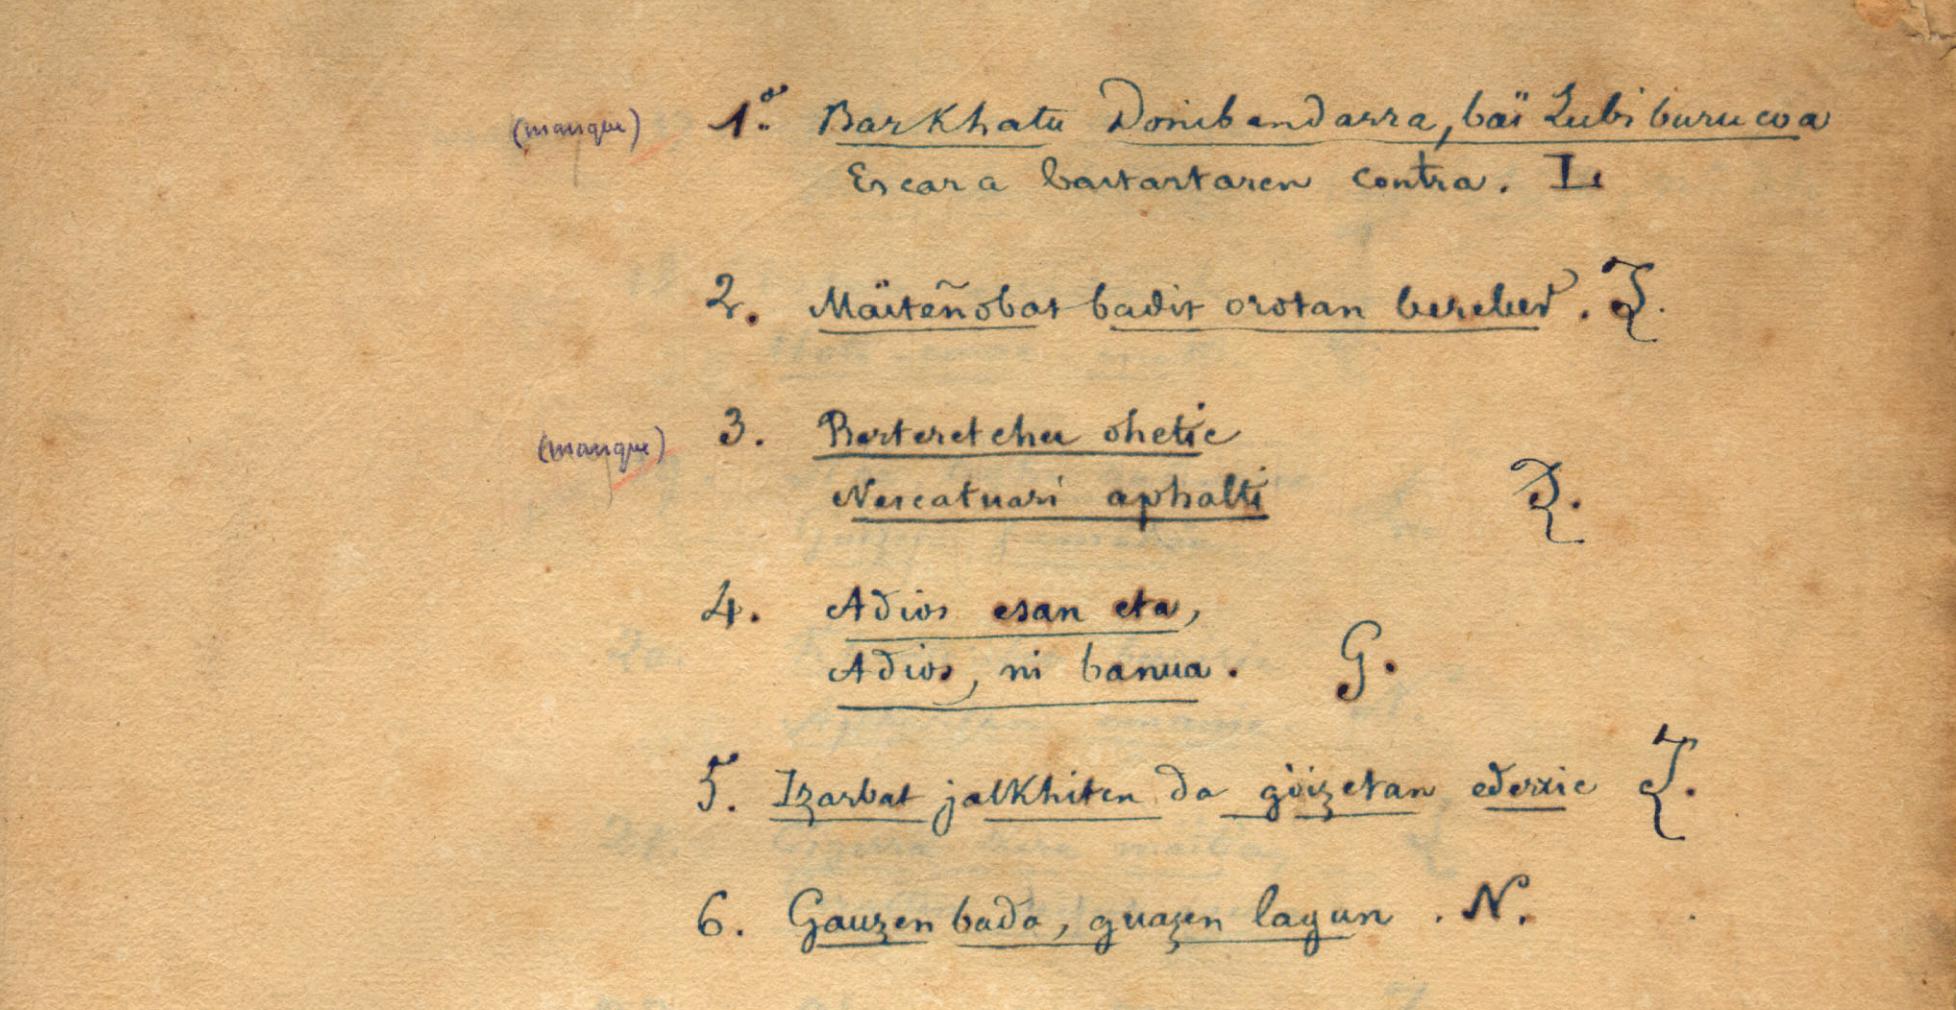 (manque) 1.º Barkhatu Donibandarra, baï Zubiburucoa
Escara bastartaren contra. L.
2. Mäiteñobat badit orotan bereber. Z.
(manque) 3. Berteretchu ohetic
Nescatuari aphalti Z.
4. Adios esan eta,
Adios, ni banua. G.
5. Izarbat jalkhiten da göizetan ederric Z.
6. Gauzen bada, guazen lagun. N.